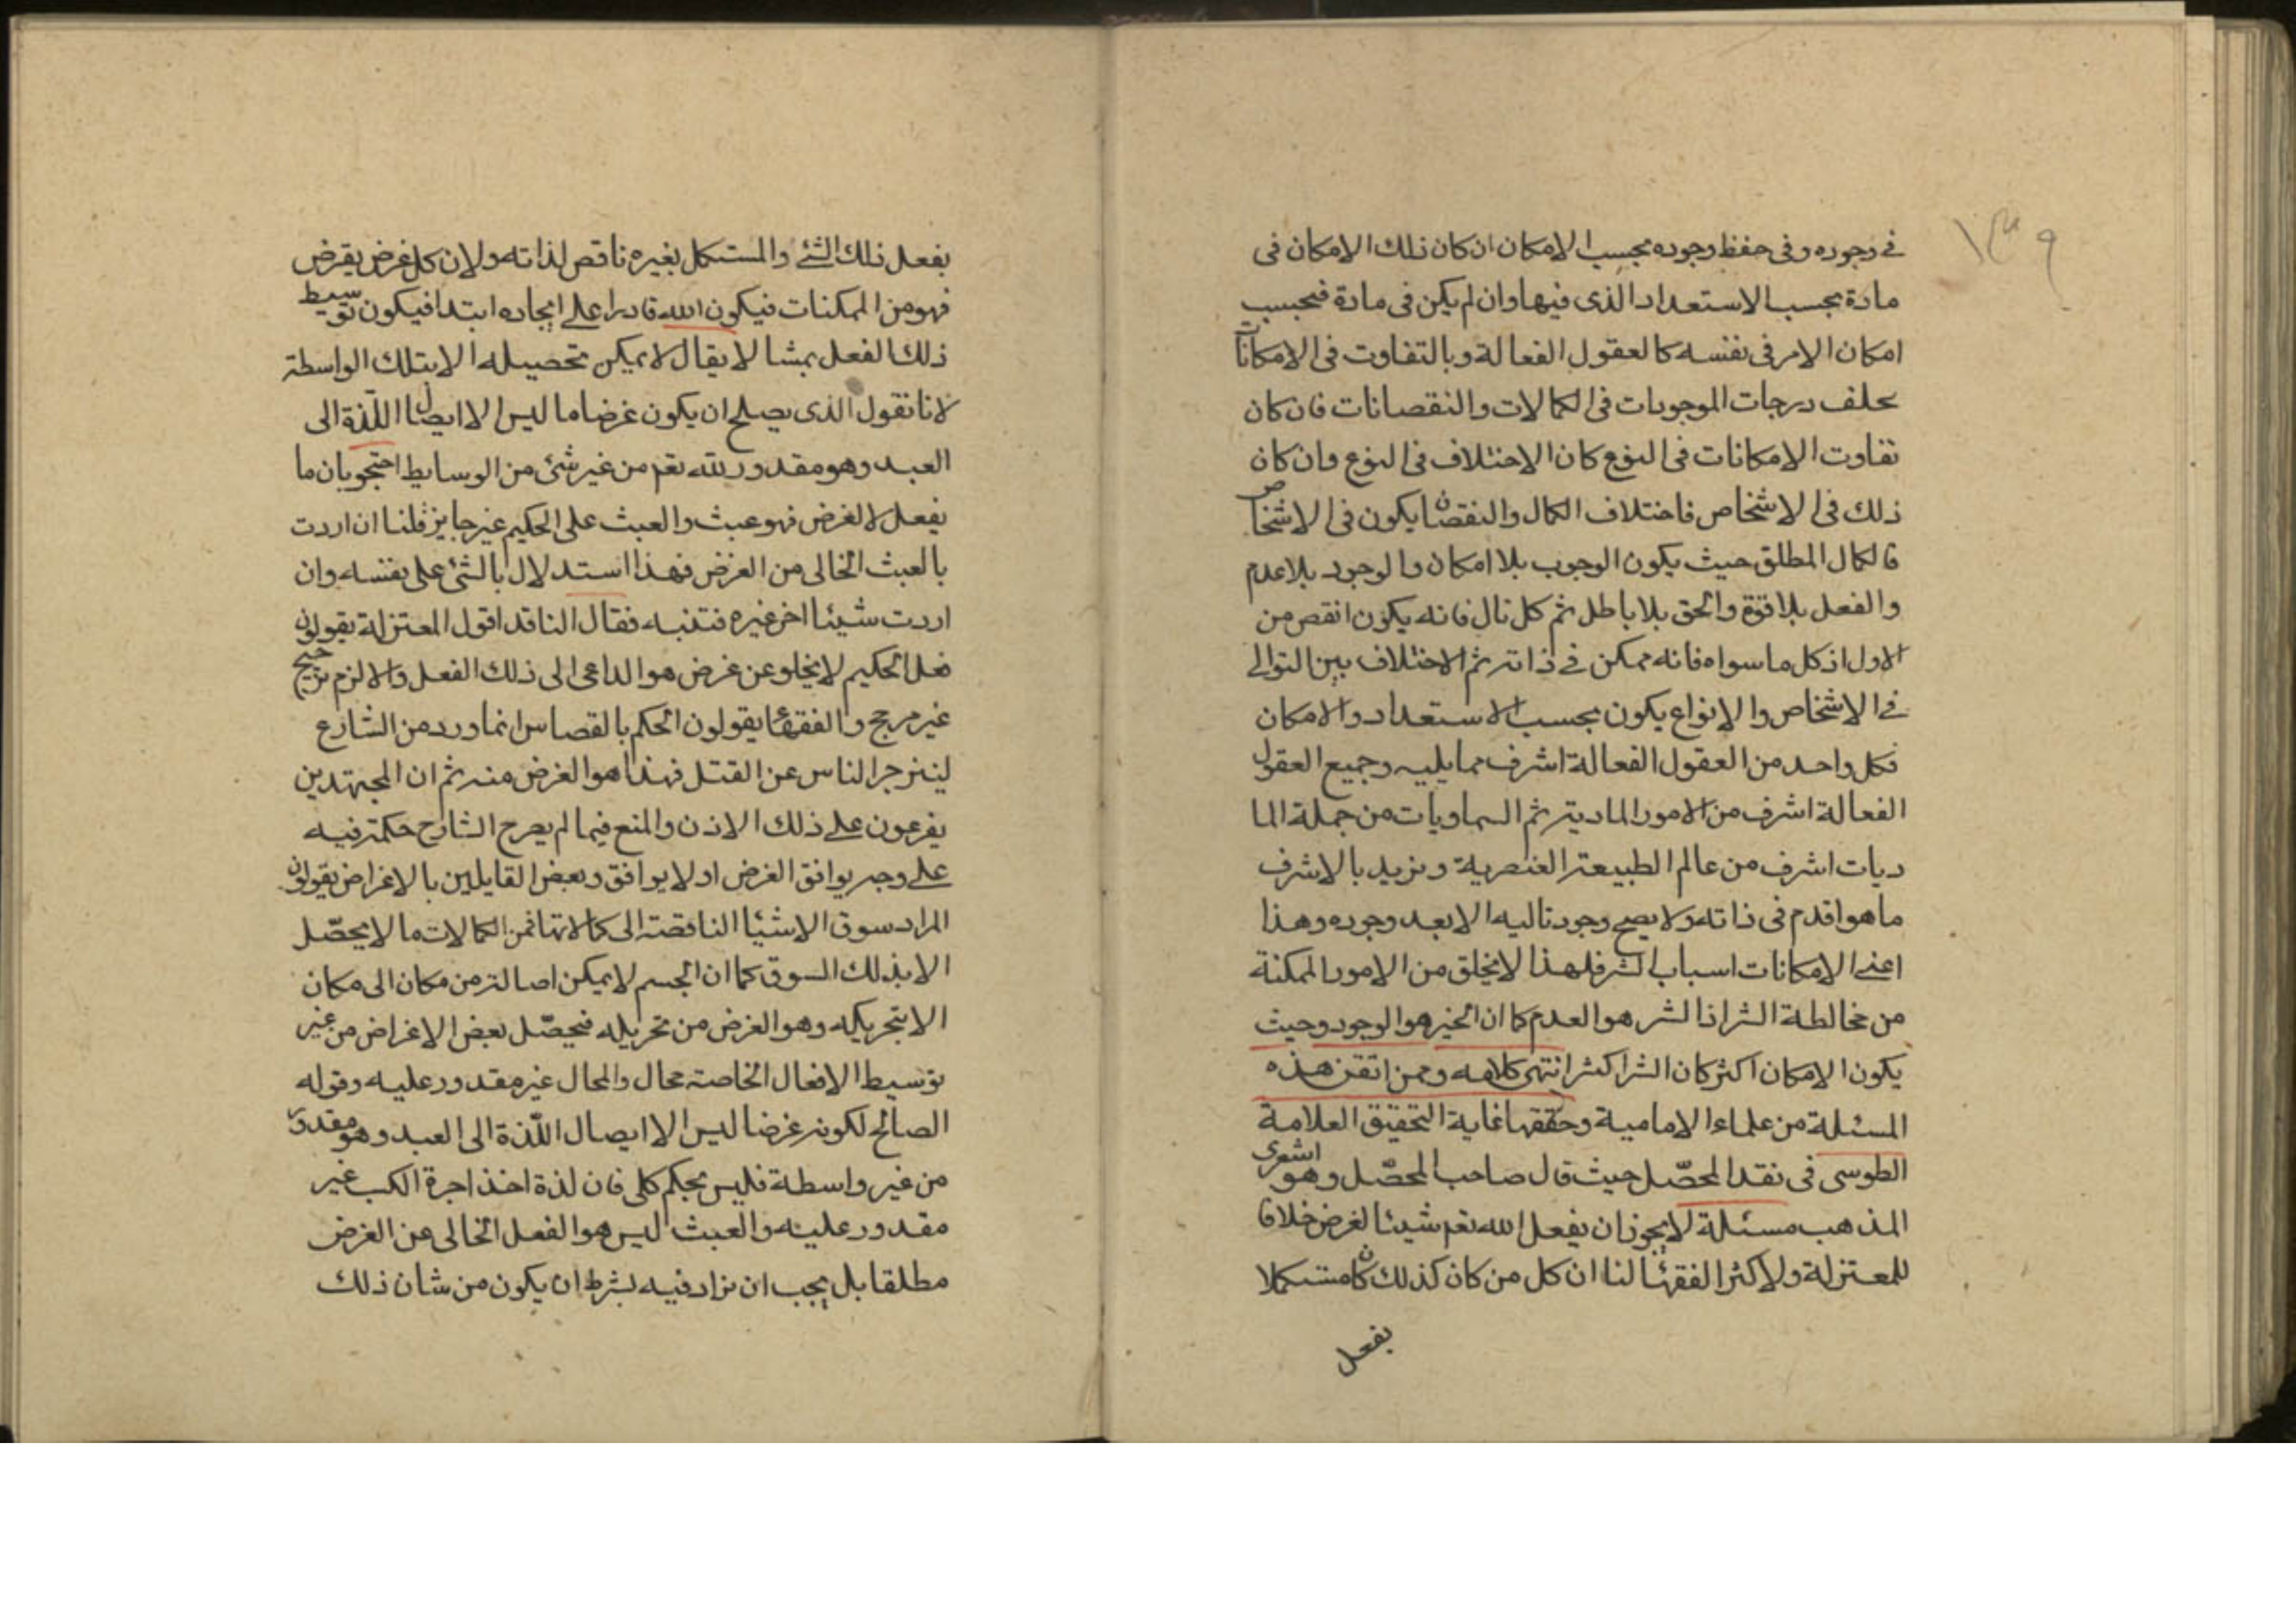 ١٣٩
في وجوده وفى حفظ وجوده بحسب الامكان ان كان ذلك الامكان فى
مادة بحسب الاستعداد الذى فيها وان لم يكن فى مادة فبحسب
امكان الامر فى نفسه كالعقول الفعالة وبالتفاوت فى الامكانات
يختلف درجات الموجودات فى الكمالات والنقصانات فان كان
تفاوت الامكانات فى النوع كان الاختلاف فى النوع وان كان
ذلك فى الاشخاص فاختلاف الكمال والنقصان يكون فى الاشخاص
فالكمال المطلق حيث يكون الوجوب بلا امكان والوجود بلا عدم
والفعل بلا قوة والحق بلا باطل ثم كل تال فانه يكون انقص من
الاول اذ كل ما سواه فانه ممكن في ذاته ثم الاختلاف بين التوالي
في الاشخاص والانواع يكون بحسب الاستعداد والامكان
فكل واحد من العقول الفعالة اشرف مما يليه وجميع العقول
الفعالة اشرف من الامور المادية ثم السماويات من جملة الما
ديات اشرف من عالم الطبيعة العنصرية ونريد بالاشرف
ما هو اقدم فى ذاته ولا يصح وجود تاليه الا بعد وجوده وهذا
اعني الامكانات اسباب الشر فلهذا لا يخلق من الامور الممكنة
من مخالطة الشر اذ الشر هو العدم كما ان الخير هو الوجود وحيث
يكون الامكان اكثر كان الشر اكثر انتهى كلامه وممن اتقن هذه
المسئلة من علماء الامامية وحققها غاية التحقيق العلامة
الطوسى فى نقد المحصّل حيث قال صاحب المحصّل وهو اشعرى
المذهب مسئلة لا يجوز ان يفعل الله تعم شيئا لغرض خلافا
للمعتزلة ولاكثر الفقها لنا ان كل من كان كذلك كان مستكملا
بفعل
بفعل ذلك الشئ والمستكمل بغيره ناقص لذاته ولان كل غرض يفرض
فهو من الممكنات فيكون الله قادرا على ايجاده ابتدا فيكون توسيط
ذلك الفعل عبثا لا يقال لا يمكن تحصيله الا بتلك الواسطة
لانا نقول الذى يصلح ان يكون غرضا ما ليس الا ايصال اللّذة الى
العبد وهو مقدور لله تعم من غير شئ من الوسايط احتجو بان ما
يفعل لا لغرض فهو عبث والعبث على الحكيم غير جايز قلنا ان اردت
بالعبث الخالى من الغرض فهذا استدلال بالشئ على نفسه وان
اردت شيئا اخر غيره فتنبه فقال الناقد اقول المعتزلة يقولون
فعل الحكيم لا يخلو عن غرض هو الداعى الى ذلك الفعل والا لزم ترجيح
غير مرجح والفقها يقولون الحكم بالقصاص انما ورد من الشارع
لينزجر الناس عن القتل فهذا هو الغرض منه ثم ان المجتهدين
يفرعون على ذلك الاذن والمنع فيما لم يصرح الشارح حكمه فيه
على وجه يوافق الغرض او لا يوافق وبعض القايلين بالاغراض يقولون
المراد سوق الاشيا الناقصة الى كمالاتها فمن الكمالات ما لا يحصّل
الا بذلك السوق كما ان الجسم لا يمكن اصالته من مكان الى مكان
الا بتحريكه وهو الغرض من تحريكه فيحصّل بعض الاغراض من غير
توسيط الافعال الخاصة محال والمحال غير مقدور عليه وقوله
الصالح لكونه غرضا ليس الا ايصال اللّذة الى العبد وهو مقدور
من غير واسطة فليس بحكم كلى فان لذة اخذ اجرة الكسب غير
مقدور عليه والعبث ليس هو الفعل الخالى عن الغرض
مطلقا بل يجب ان يزاد فيه بشرط ان يكون من شان ذلك